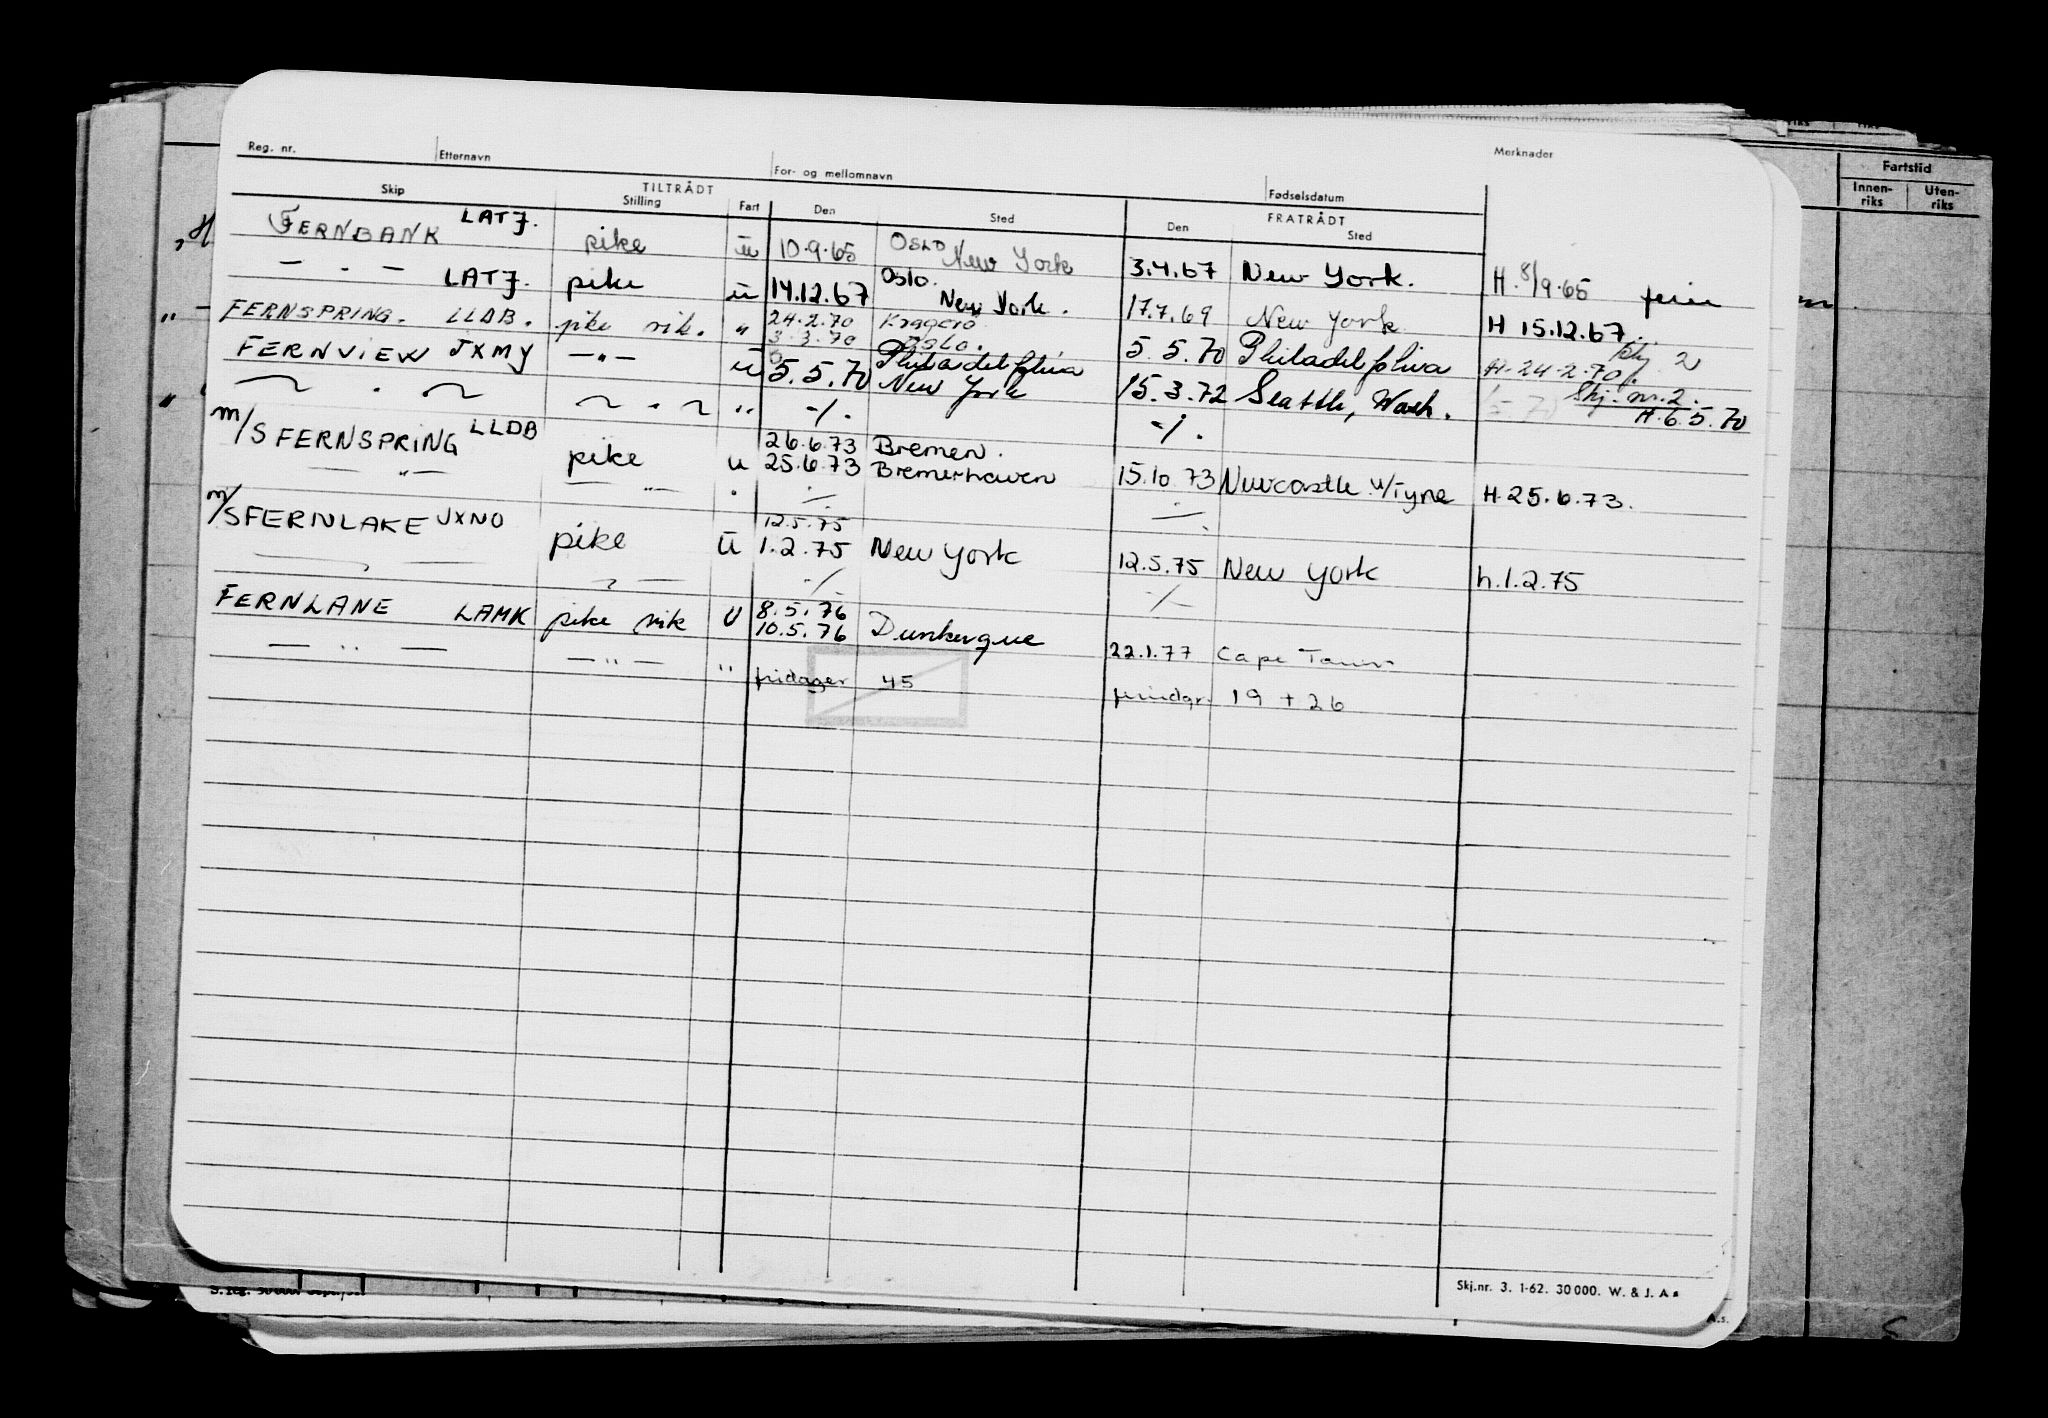 Reg. nr. Etternavn For- og mellomnavn Fødselsdatum Merknader
TILTRÅDT FRATRÅDT
Skip Stilling Fart Den Sted Den Sted
Fartstid
Innen-riks Uten-riks
FERNBANK LATJ. pike u 10.9.65 OSLO New York 3.4.67 New York. H. 8/9.65 ferie
— . — LATJ. pike u 14.12.67 Oslo. New York. 17.7.69 New York H 15.12.67
FERNSPRING. LLDB. pike vik. " 24.2.70 Kragerö
3.3.70 Oslo. 5.5.70 Philadelphia H. 24.2.70. Skj. 2
FERNVIEW JXMY — " — u 5.5.70 Philadelphia New York 15.3.72 Seattle, Wash. Skj. nr. 2. H. 6.5.70
~ . ~ ~ . ~ " -/. -/.
m/S FERNSPRING LLDB pike u 26.6.73 Bremen.
25.6.73 Bremerhaven 15.10.73 Newcastle u/Tyne H. 25.6.73.
— " — — " —
m/S FERNLAKE JXNO pike u 12.5.75
1.2.75 New York 12.5.75 New York h. 1.2.75
-/. -/-
FERNLANE LAMK pike vik U 8.5.76
10.5.76 Dunkerque 22.1.77 Cape Town
— " — — " — " fridager 45 19 + 26
Skj.nr. 3. 1-62. 30 000. W. & J. A s
A.s.